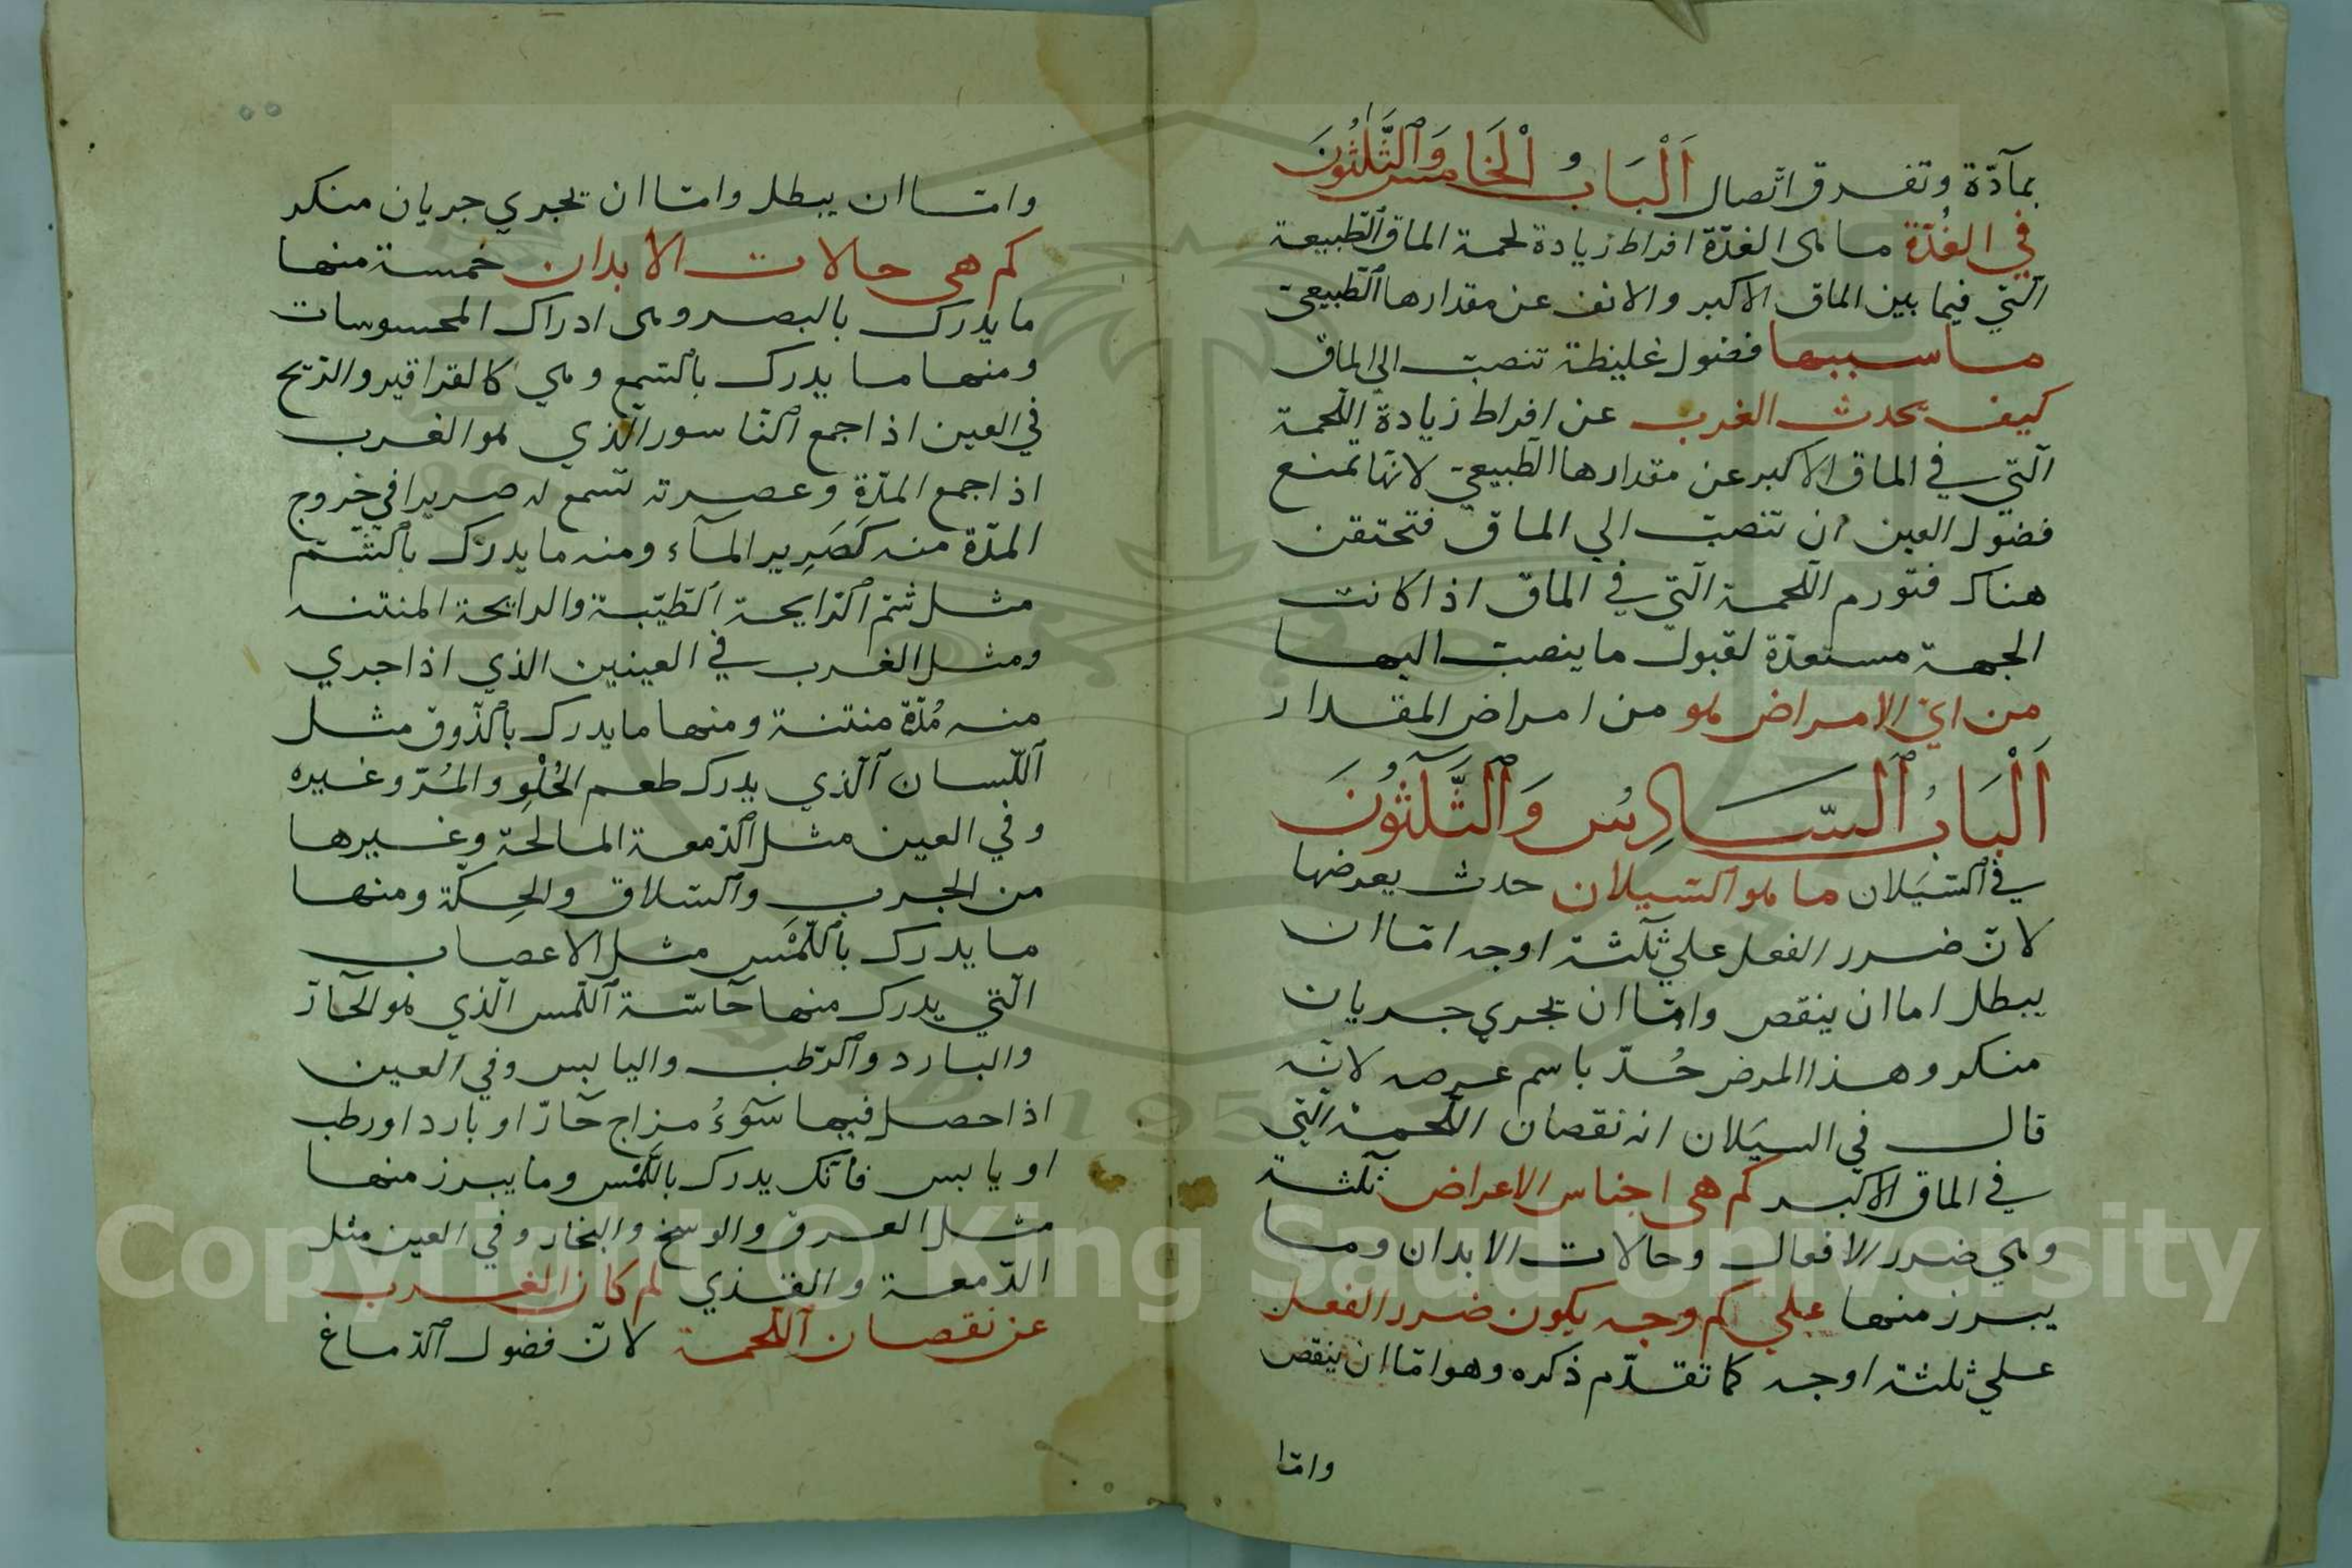 بمآدّة وتفرق اتّصال اَلْبَابُ الْخَامِس وَالثَّلٰثُونَ
في الغُدّة ما هى الغدّة افراط زيادة لحمة الماق الطّبيعة
الّتي فيما بين الماق الاكبر والانف عن مقدارها الطّبيعي
ما سببها فضول غليظة تنصبّ الى الماق
كيف يحدث الغرب عن افراط زيادة اللّحمة
الّتي في الماق الاكبر عن مقدارها الطّبيعي لانّها تمنع
فضول العين ان تنصبّ الي الماق فتحتقن
هناك فتورم اللّحمة الّتي في الماق اذا كانت
الجهة مستعدّة لقبول ما ينصبّ اليها
من ايّ الامراض هو من امراض المقدار
اَلْبَابُ السَّادِسُ وَالثَّلٰثُونَ
في السَّيَلان ما هو السّيلان حدث يعرضها
لانّ ضرر الفعل علي ثلٰثة اوجه امّا ان
يبطل اما ان ينقص وامّا ان تجري جريان
منكر وهذا المرض حُدّ باسم عرضه لانّه
قال في السيَلان انه نقصان اللّحمة الّتي
في الماق الاكبر كم هى اجناس الاعراض ثلٰثة
وهي ضرر الافعال وحالات الابدان وما
يبرز منها علي كم وجه يكون ضرر الفعل
علي ثلثة اوجه كما تقدّم ذكره وهو امّا ان ينقص
وامّا
وامّا ان يبطل وامّا ان تجري جريان منكر
كم هى حالات الابدان خمسة منها
ما يدرك بالبصر وهى ادراك المحسوسات
ومنها ما يدرك بالسّمع وهي كالقراقير والرّيح
في العين اذا جمع النّاسور الّذي هو الغرب
اذا جمع المدّة وعصرته تسمع له صريرا في خروج
المدّة منه كَصَرِير المآء ومنه ما يدرك بالشّم
مثل شمّ الرّايحة الطّيّبة والرايحة المنتنه
ومثل الغرب في العينين الذي اذا جري
منه مُدّة منتنة ومنها ما يدرك بالذّوق مثل
اللّسان الّذي يدرك طعم الحُلْوِ والمُرّ وغيره
وفي العين مثل الدّمعة المالحَة وغيرها
من الجرب والسّلاق والحِكّة ومنها
ما يدرك باللّمْس مثل الاعصاب
الّتي يدرك منها حآسّة اللّمس الّذي هو الحآرّ
والبارد والرّطب واليابس وفي العين
اذا حصل فيها سوٓءُ مزاج حآرّ او بارد او رطب
او يابس فانّك يدرك باللّمْس وما يبرز منها
مثل العرق والوسخ والبخار وفي العين مثل
الدّمعة والقذي لم كان الغرب
عن نقصان اللّحمة لانّ فضول الدّماغ